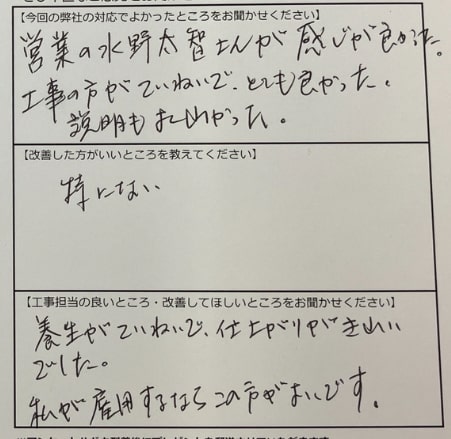 【今回の弊社の対応でよかったところをお聞かせください】
営業の水野太智さんが感じが良かった。
工事の方がていねいで、とても良かった。
説明もよかった。
【改善した方がいいところを教えてください】
特にない
【工事担当の良いところ・改善してほしいところをお聞かせください】
養生がていねいで、仕上がりがきれい
でした。
私が雇用するならこの方がよいです。